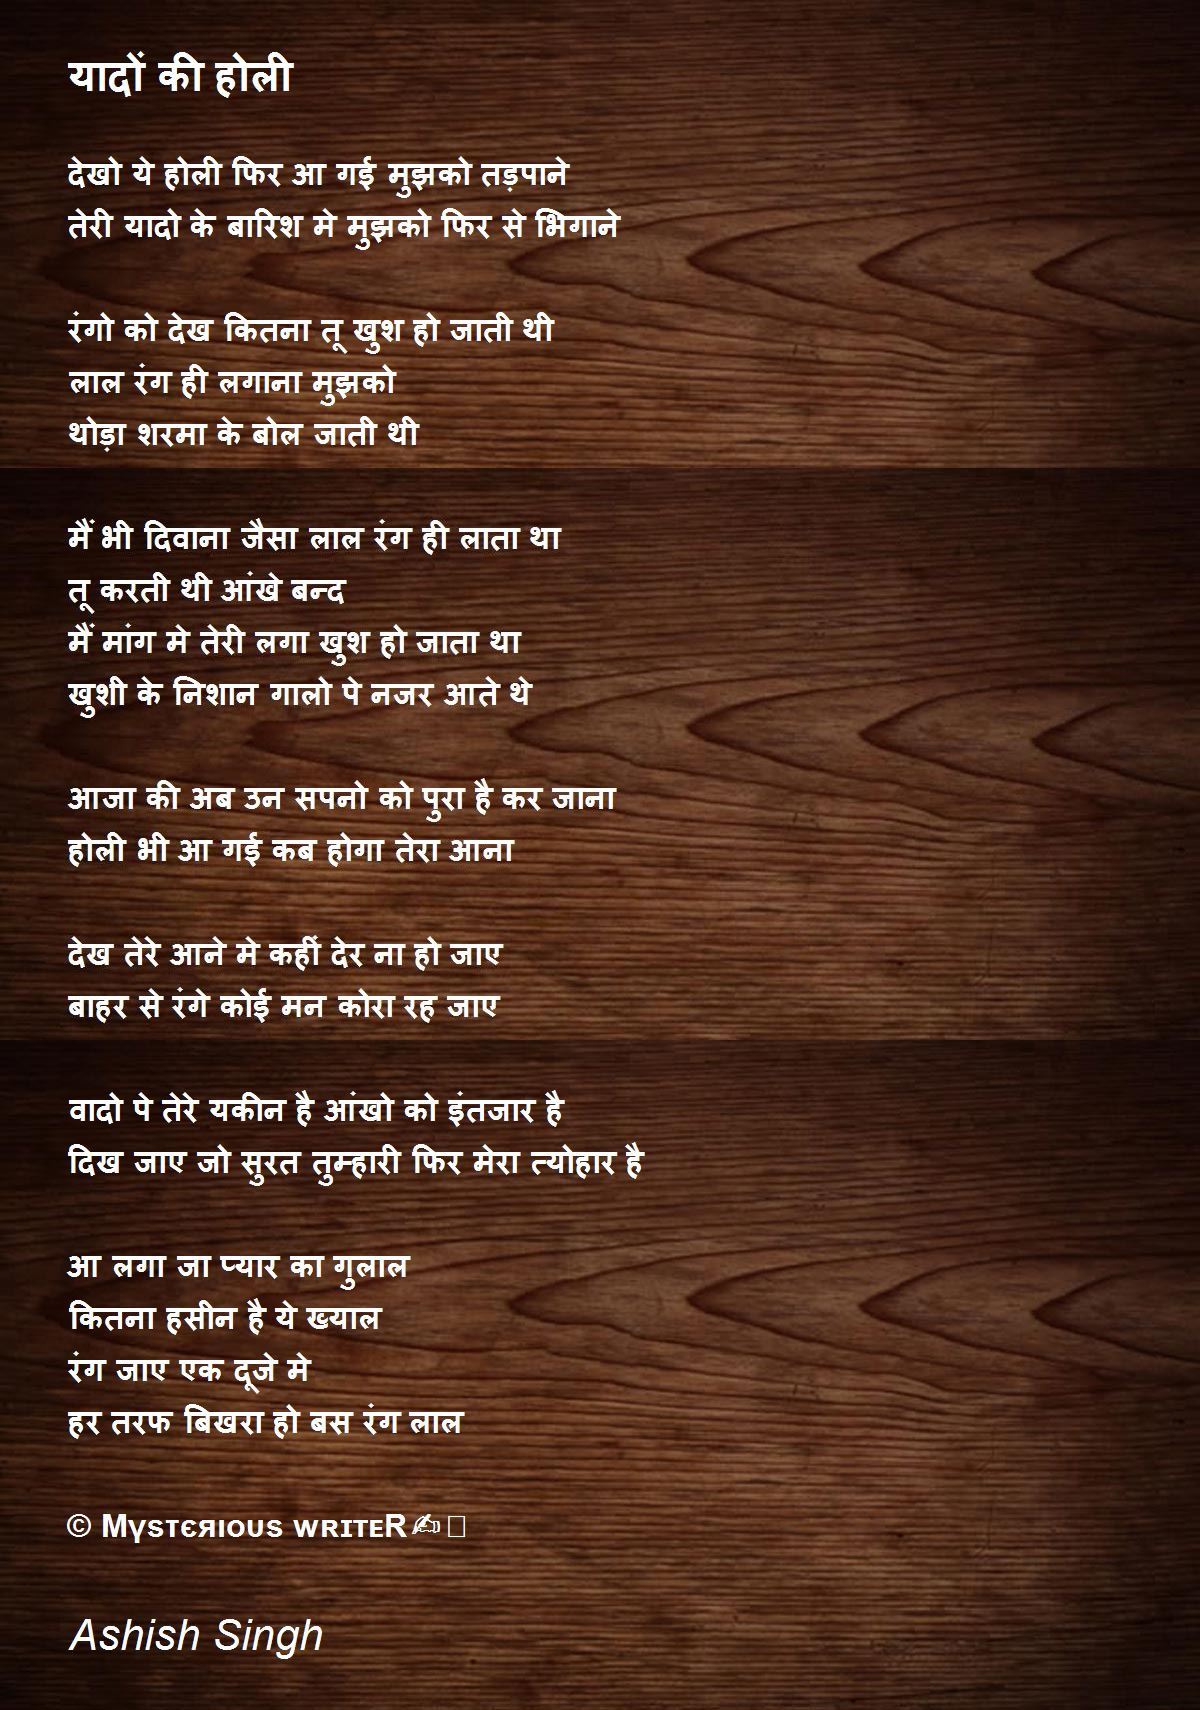 यादों की होली
देखो ये होली फिर आ गई मुझको तड़पाने
तेरी यादो के बारिश मे मुझको फिर से भिगाने
रंगो को देख कितना तू खुश हो जाती थी
लाल रंग ही लगाना मुझको
थोड़ा शरमा के बोल जाती थी
मैं भी दिवाना जैसा लाल रंग ही लाता था
तू करती थी आंखे बन्द
मैं मांग मे तेरी लगा खुश हो जाता था
खुशी के निशान गालो पे नजर आते थे
आजा की अब उन सपनो को पुरा है कर जाना
होली भी आ गई कब होगा तेरा आना
देख तेरे आने मे कहीं देर ना हो जाए
बाहर से रंगे कोई मन कोरा रह जाए
वादो पे तेरे यकीन है आंखो को इंतजार है
दिख जाए जो सुरत तुम्हारी फिर मेरा त्योहार है
आ लगा जा प्यार का गुलाल
कितना हसीन है ये ख्याल
रंग जाए एक दूजे मे
हर तरफ बिखरा हो बस रंग लाल
© Mүsтєяıous wʀıтeR✍
Ashish Singh